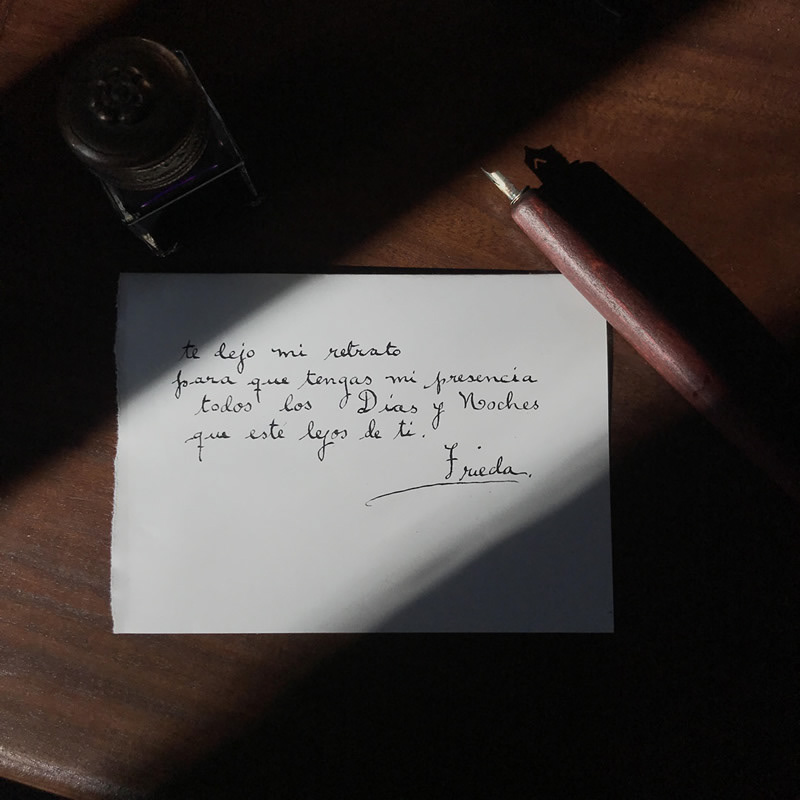 te dejo mi retrato
para que tengas mi presencia
todos los Días y Noches
que esté lejos de ti.
Frieda.